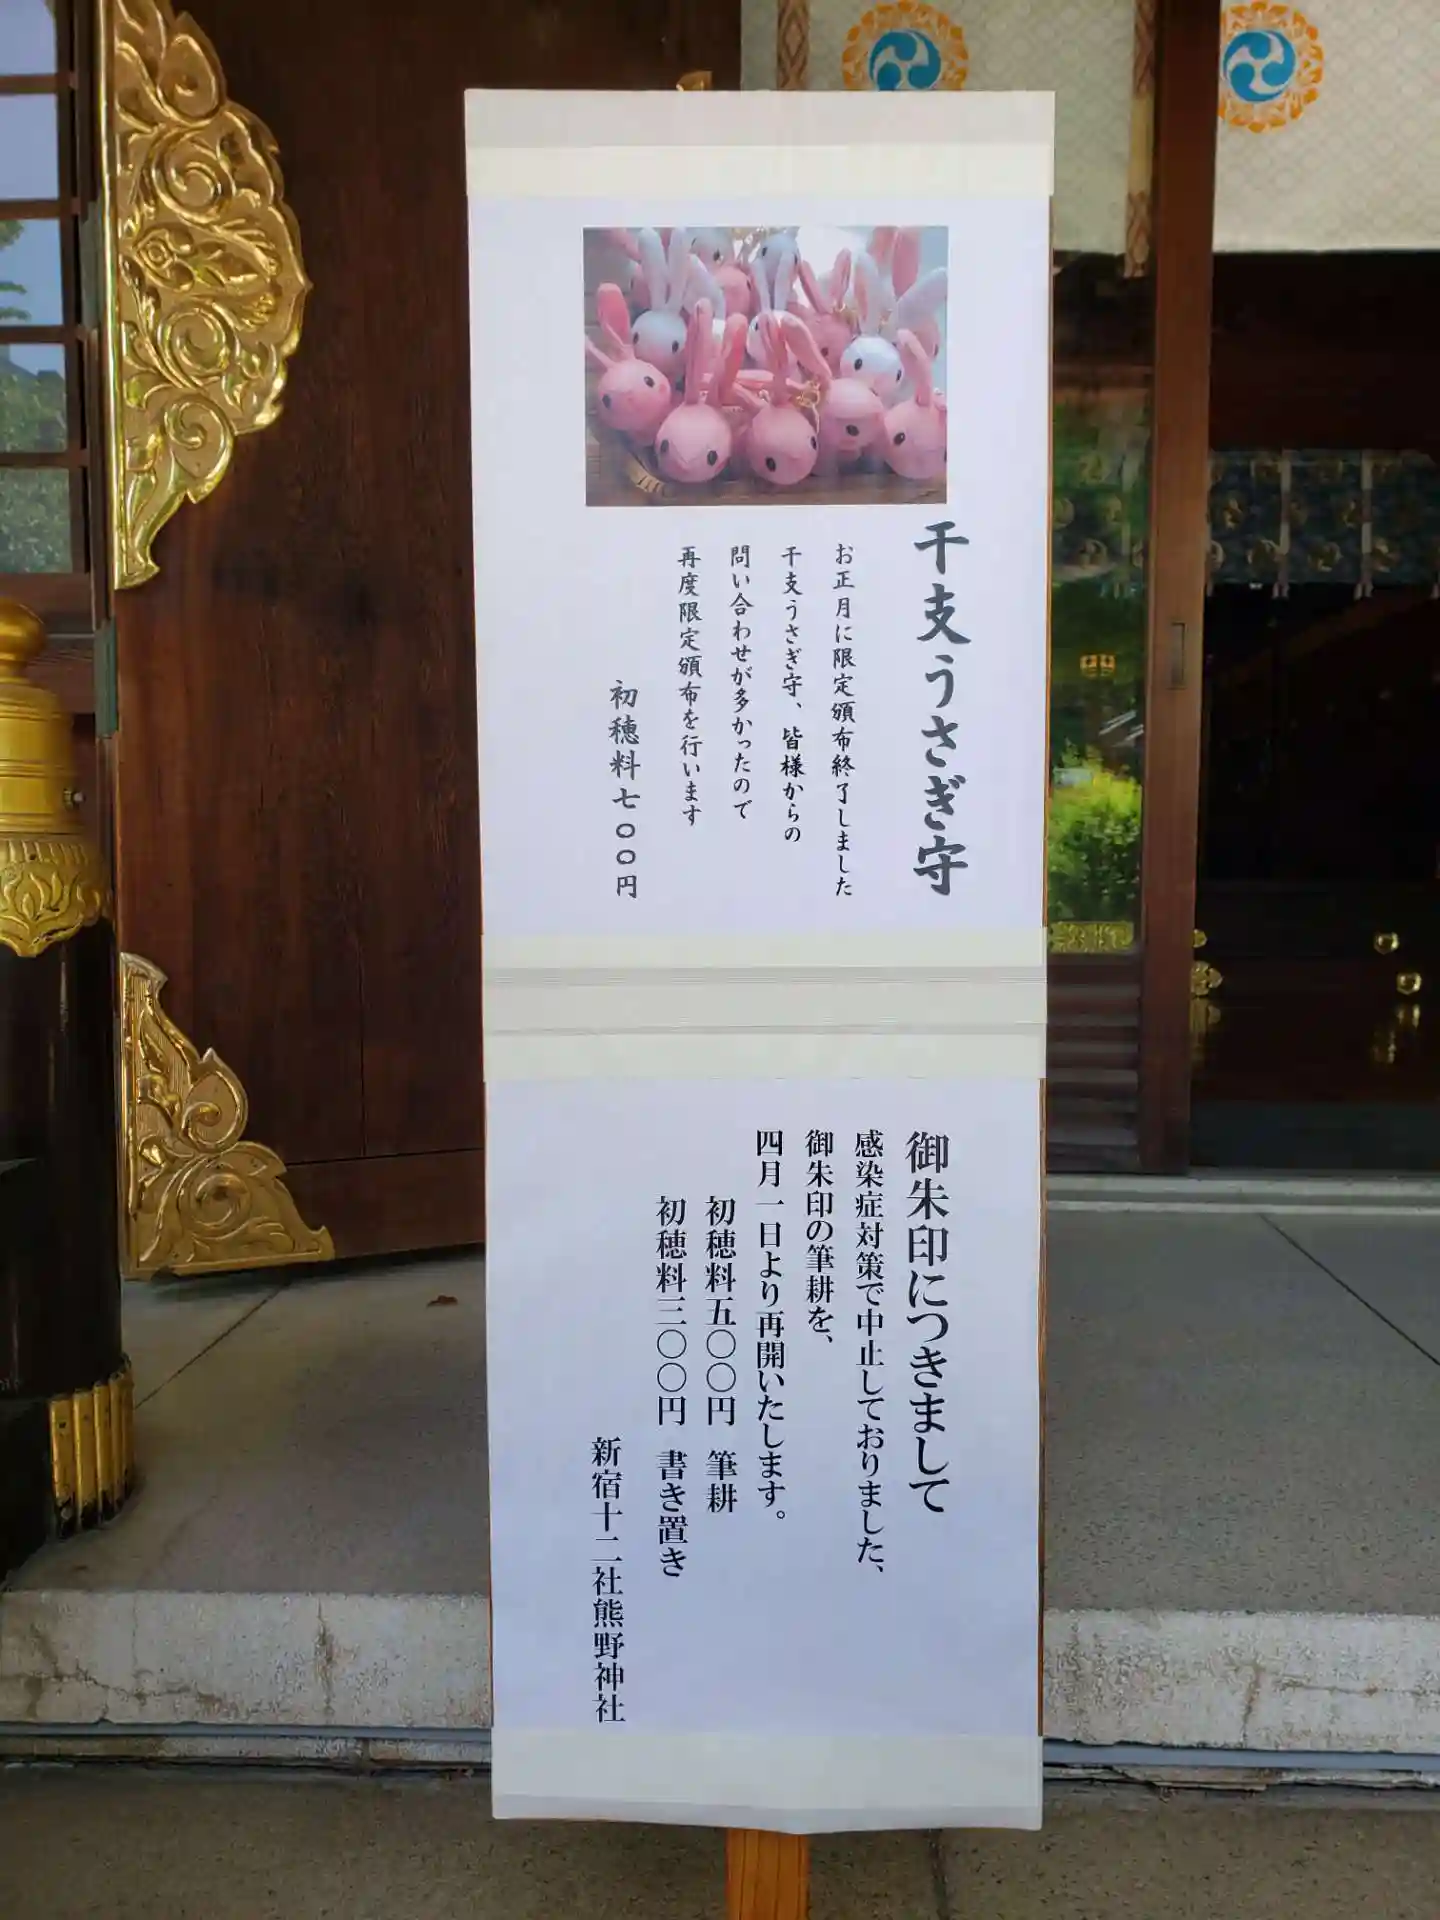 干支うさぎ守
お正月に限定頒布終了しました
干支うさぎ守、皆様からの
問い合わせが多かったので
再度限定頒布を行います
初穂料七〇〇円
御朱印につきまして
感染症対策で中止しておりました、
御朱印の筆耕を、
四月一日より再開いたします。
初穂料五〇〇円 筆耕
初穂料三〇〇円 書き置き
新宿十二社熊野神社